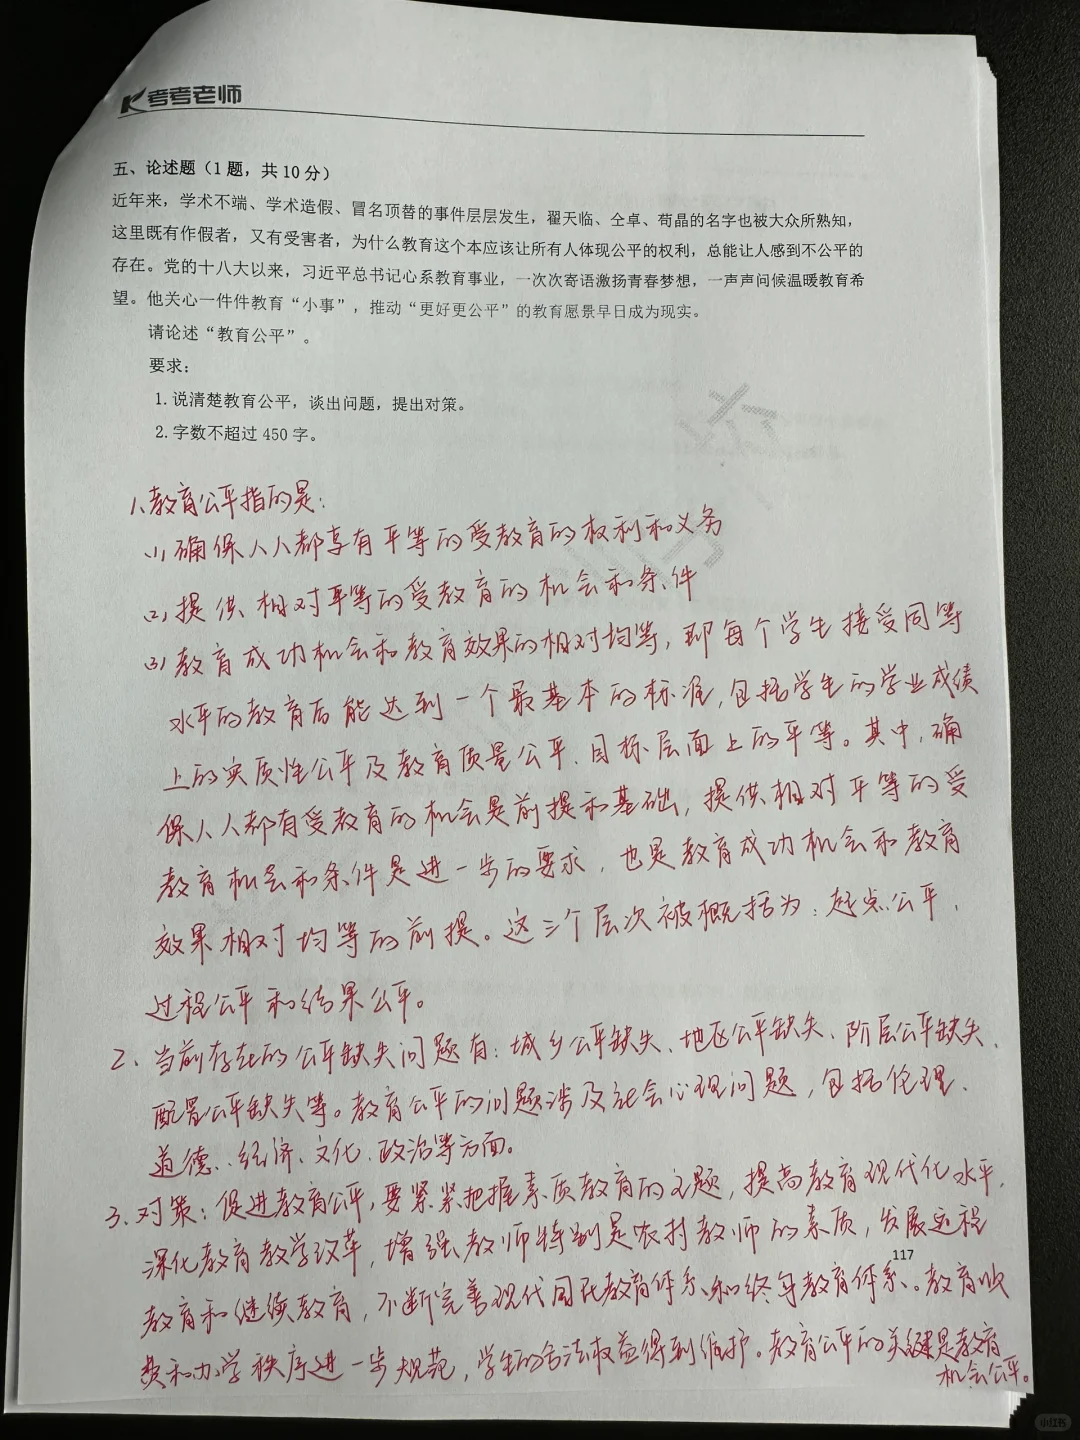 考考老师
五、论述题（1 题，共 10 分）
近年来，学术不端、学术造假、冒名顶替的事件层层发生，翟天临、仝卓、苟晶的名字也被大众所熟知，
这里既有作假者，又有受害者，为什么教育这个本应该让所有人体现公平的权利，总能让人感到不公平的
存在。党的十八大以来，习近平总书记心系教育事业，一次次寄语激扬青春梦想，一声声问候温暖教育希
望。他关心一件件教育“小事”，推动“更好更公平”的教育愿景早日成为现实。
请论述“教育公平”。
要求：
1. 说清楚教育公平，谈出问题，提出对策。
2. 字数不超过 450 字。
1、教育公平指的是：
(1) 确保人人都享有平等的受教育的权利和义务
(2) 提供相对平等的受教育的机会和条件
(3) 教育成功机会和教育效果的相对均等，即每个学生接受同等
水平的教育后能达到一个最基本的标准，包括学生的学业成绩
上的实质性公平及教育质量公平、目标层面上的平等。其中，确
保人人都有受教育的机会是前提和基础，提供相对平等的受
教育机会和条件是进一步的要求，也是教育成功机会和教育
效果相对均等的前提。这三个层次被概括为：起点公平、
过程公平和结果公平。
2、当前存在的公平缺失问题有：城乡公平缺失、地区公平缺失、阶层公平缺失、
配置公平缺失等。教育公平的问题涉及社会心理问题，包括伦理、
道德、经济、文化、政治等方面。
3、对策：促进教育公平，要紧紧把握素质教育的主题，提高教育现代化水平，
深化教育教学改革，增强教师特别是农村教师的素质，发展远程
117
教育和继续教育，不断完善现代国民教育体系和终身教育体系。教育收
费和办学秩序进一步规范，学生的合法权益得到维护。教育公平的关键是教育
机会公平。
小红书